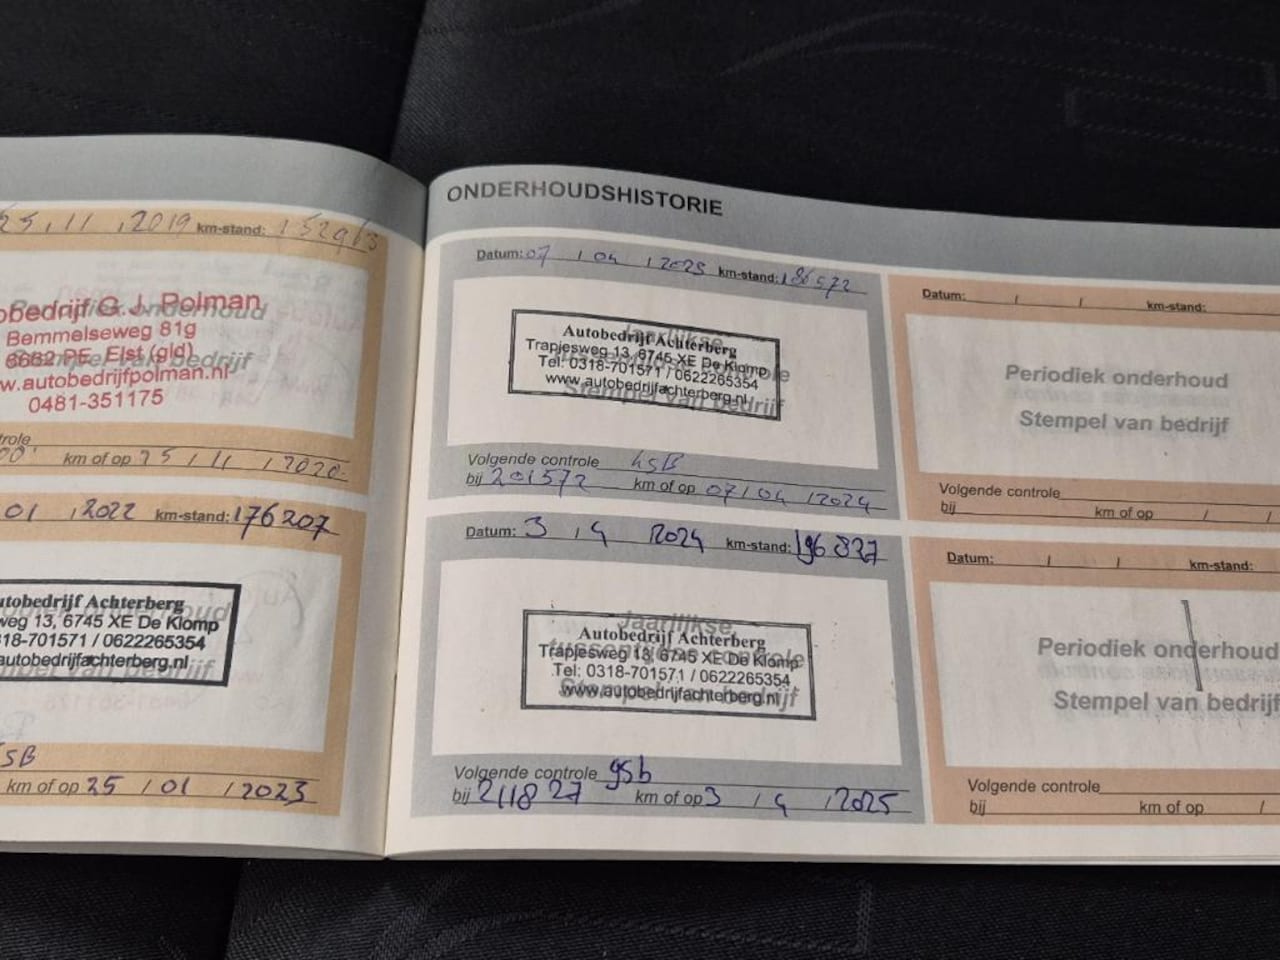 25 / 11 / 2019 km-stand: 152963
obedrijf G. J. Polman
Periodiek onderhoud
Bemmelseweg 81g
6662 PE Elst (gld)
Stempel van bedrijf
w.autobedrijfpolman.nl
0481-351175
trole
km of op 25 / 11 / 2020
01 / 2022 km-stand: 176207
utobedrijf Achterberg
onderhoud
weg 13, 6745 XE De Klomp
318-701571 / 0622265354
autobedrijfachterberg.nl
bedrijf
SB
km of op 25 / 01 / 2023
ONDERHOUDSHISTORIE
Datum: 07 / 04 / 2023 km-stand: 186572
Jaarlijkse
Autobedrijf Achterberg
Trapjesweg 13, 6745 XE De Klomp
tussentijdse controle
Tel: 0318-701571 / 0622265354
www.autobedrijfachterberg.nl
Stempel van bedrijf
Volgende controle
bij 201572 km of op 07 / 04 / 2024
Datum: 3 / 4 2024 km-stand: 196827
Jaarlijkse
Autobedrijf Achterberg
Trapjesweg 13, 6745 XE De Klomp
tussentijdse controle
Tel: 0318-701571 / 0622265354
www.autobedrijfachterberg.nl
Stempel van bedrijf
Volgende controle gsb
bij 211827 km of op 3 / 4 / 2025
Datum: / / km-stand:
Periodiek onderhoud
Stempel van bedrijf
Volgende controle
bij km of op / /
Datum: / / km-stand:
Periodiek onderhoud
Stempel van bedrijf
Volgende controle
bij km of op /